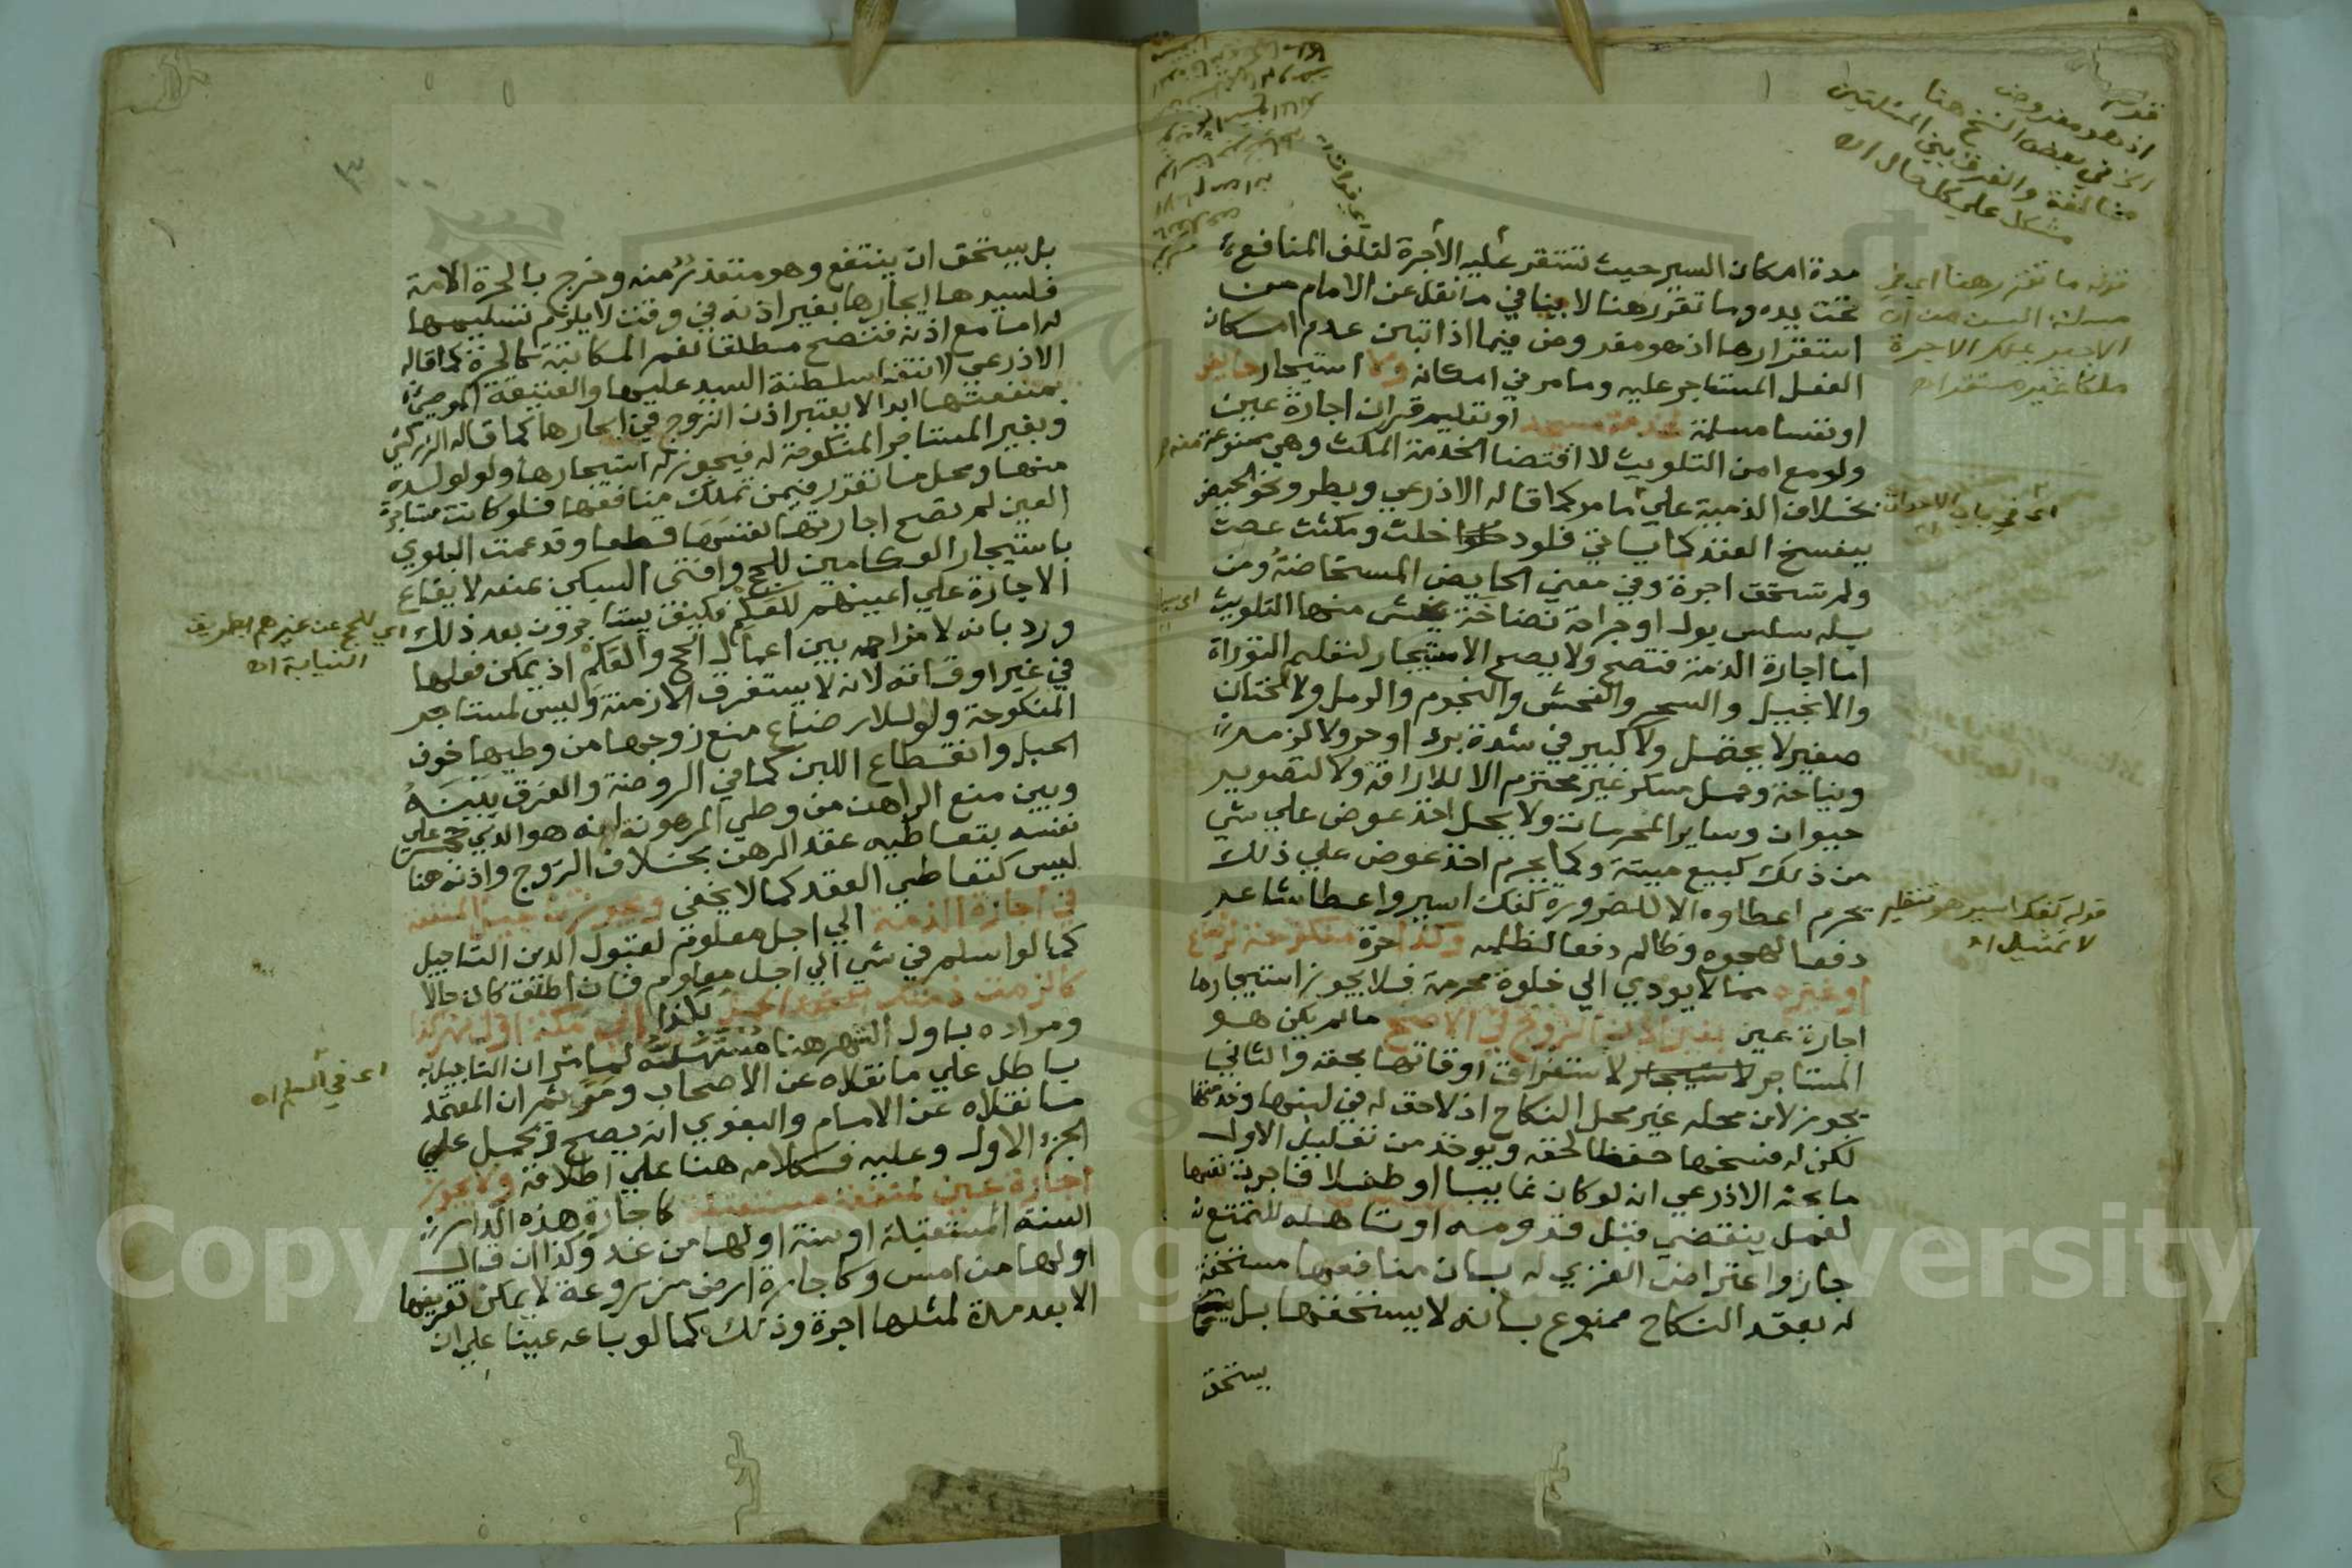 مدة امكان السير حيث تستقر عليه الأجرة لتلف المنافع
تحت يده وما تقرر هنا لا ينافي ما نقل عن الامام من
استقرارها اذ هو مفروض فيما اذا تبين عدم امكان
الفعل المستاجر عليه وما مر في امكانه ولا استيجار حايض
او نفسا مسلمة لخدمة مسجد او تعليم قران اجارة عين
ولو مع امن التلويث لاقتضا الخدمة المكث وهي ممنوعة منه
بخلاف الذمية علي ما مر كما قاله الاذرعي ويطرو نحو الحيض
ينفسخ العقد كما ياتي فلو دخلت ومكثت عصت
ولم تستحق اجرة وفي معني الحايض المستحاضة ومن
به سلس بول او جراحة نضاخة يخش منها التلويث
اما اجارة الذمة فتصح ولا يصح الاستيجار لتعليم التوراة
والانجيل والسحر والفحش والنجوم والرمل ولا لختان
صغير لا يحتمل ولا كبير في شدة برد او حر ولا لزمر
ونياحة وحمل مسكر غير محترم الا للاراقة ولا لتصوير
حيوان وساير المحرمات ولا يحل اخذ عوض علي شي
من ذلك كبيع ميتة وكما يحرم اخذ عوض علي ذلك
يحرم اعطاوه الا للضرورة كفك اسير واعطا شاعر
دفعا لهجوه وظالم دفعا لظلمه وكذا حرة منكوحة لرضاع
او غيره مما لا يودي الي خلوة محرمة فلا يجوز استيجارها
اجارة عين بغير اذن الزوج في الاصح ما لم يكن هو
المستاجر لاستغراق اوقاتها بحقه والثاني
يجوز لان محله غير محل النكاح اذ لا حق له في لبنها وخدمتها
لكن له فسخها حفظا لحقه ويوخذ من تعليل الاول
ما بحثه الاذرعي انه لو كان غايبا او طفلا فاجرت نفسها
لعمل ينقضي قبل قدومه او تاهله للتمتع
جاز واعتراض الغزي له بان منافعها مستحقة
له بعقد النكاح ممنوع بانه لا يستحقها بل
يستحق
قوله
اذ هو مفروض
الخ في بعض النسخ هنا
مخالفة والفرق بين المسئلتين
مشكل علي كل حال اه
قوله ما تقرر هنا اي في
مسئلة السن من ان
الاجير يملك الاجرة
ملكا غير مستقر اه
اى في باب الاحداث اه
قوله كفك اسير هو تنظير
لا تمثيل اه
بل يستحق ان ينتفع وهو متعذر منه وخرج بالحرة الامة
فلسيدها ايجارها بغير اذنه في وقت لا يلزم تسليمها
له اما مع اذنه فتصح مطلقا نعم المكاتبة كالحرة كما قاله
الاذرعي لانتفا سلطنة السيد عليها والعتيقة الموصي
بمنفعتها ابدا لا يعتبر اذن الزوج في ايجارها كما قاله الزركشي
وبغير المستاجر المنكوحة له فيجوز له استيجارها ولو لولده
منها ومحل ما تقرر فيمن تملك منافعها فلو كانت مستاجرة
العين لم تصح اجارتها نفسها قطعا وقد عمت البلوي
باستيجار العكامين للحج وافتي السبكي بمنعه لايقاع
الاجارة علي اعينهم للعكم فكيف يستاجرون بعد ذلك
ورد بانه لا مزاحمة بين اعمال الحج والعكم اذ يمكن فعلها
في غير اوقاته لانه لا يستغرق الازمنة وليس لمستاجر
المنكوحة ولو للارضاع منع زوجها من وطيها خوف
الحبل وانقطاع اللبن كما في الروضة والفرق بينه
وبين منع الراهن من وطي المرهونة انه هو الذي حجر علي
نفسه بتعاطيه عقد الرهن بخلاف الزوج واذنه هنا
ليس كتعاطي العقد كما لا يخفي ويجوز تاجيل المنفعة
في اجارة الذمة الي اجل معلوم لقبول الدين التاجيل
كما لو اسلم في شي الي اجل معلوم فان اطلق كان حالا
كالزمت ذمتك الحمل بكذا الي مكة اول شهر كذا
ومراده باول الشهر هنا مستهله لما مر ان التاجيل به
باطل علي ما نقلاه عن الاصحاب ومر ثم ان المعتمد
ما نقلاه عن الامام والبغوي انه يصح ويحمل علي
الجزء الاول وعليه فكلامه هنا علي اطلاقه ولا يجوز
اجارة عين لمنفعة مستقبلة كاجارة هذه الدار
السنة المستقبلة او سنة اولها من غد وكذا ان قال
اولها من امس وكاجارة ارض مزروعة لا يمكن تفريغها
الا بعد مدة لمثلها اجرة وذلك كما لو باعه عينا علي ان
اي للحج عن غيرهم بطريق
النيابة اه
اى في السلم اه
Copyright © King Saud University